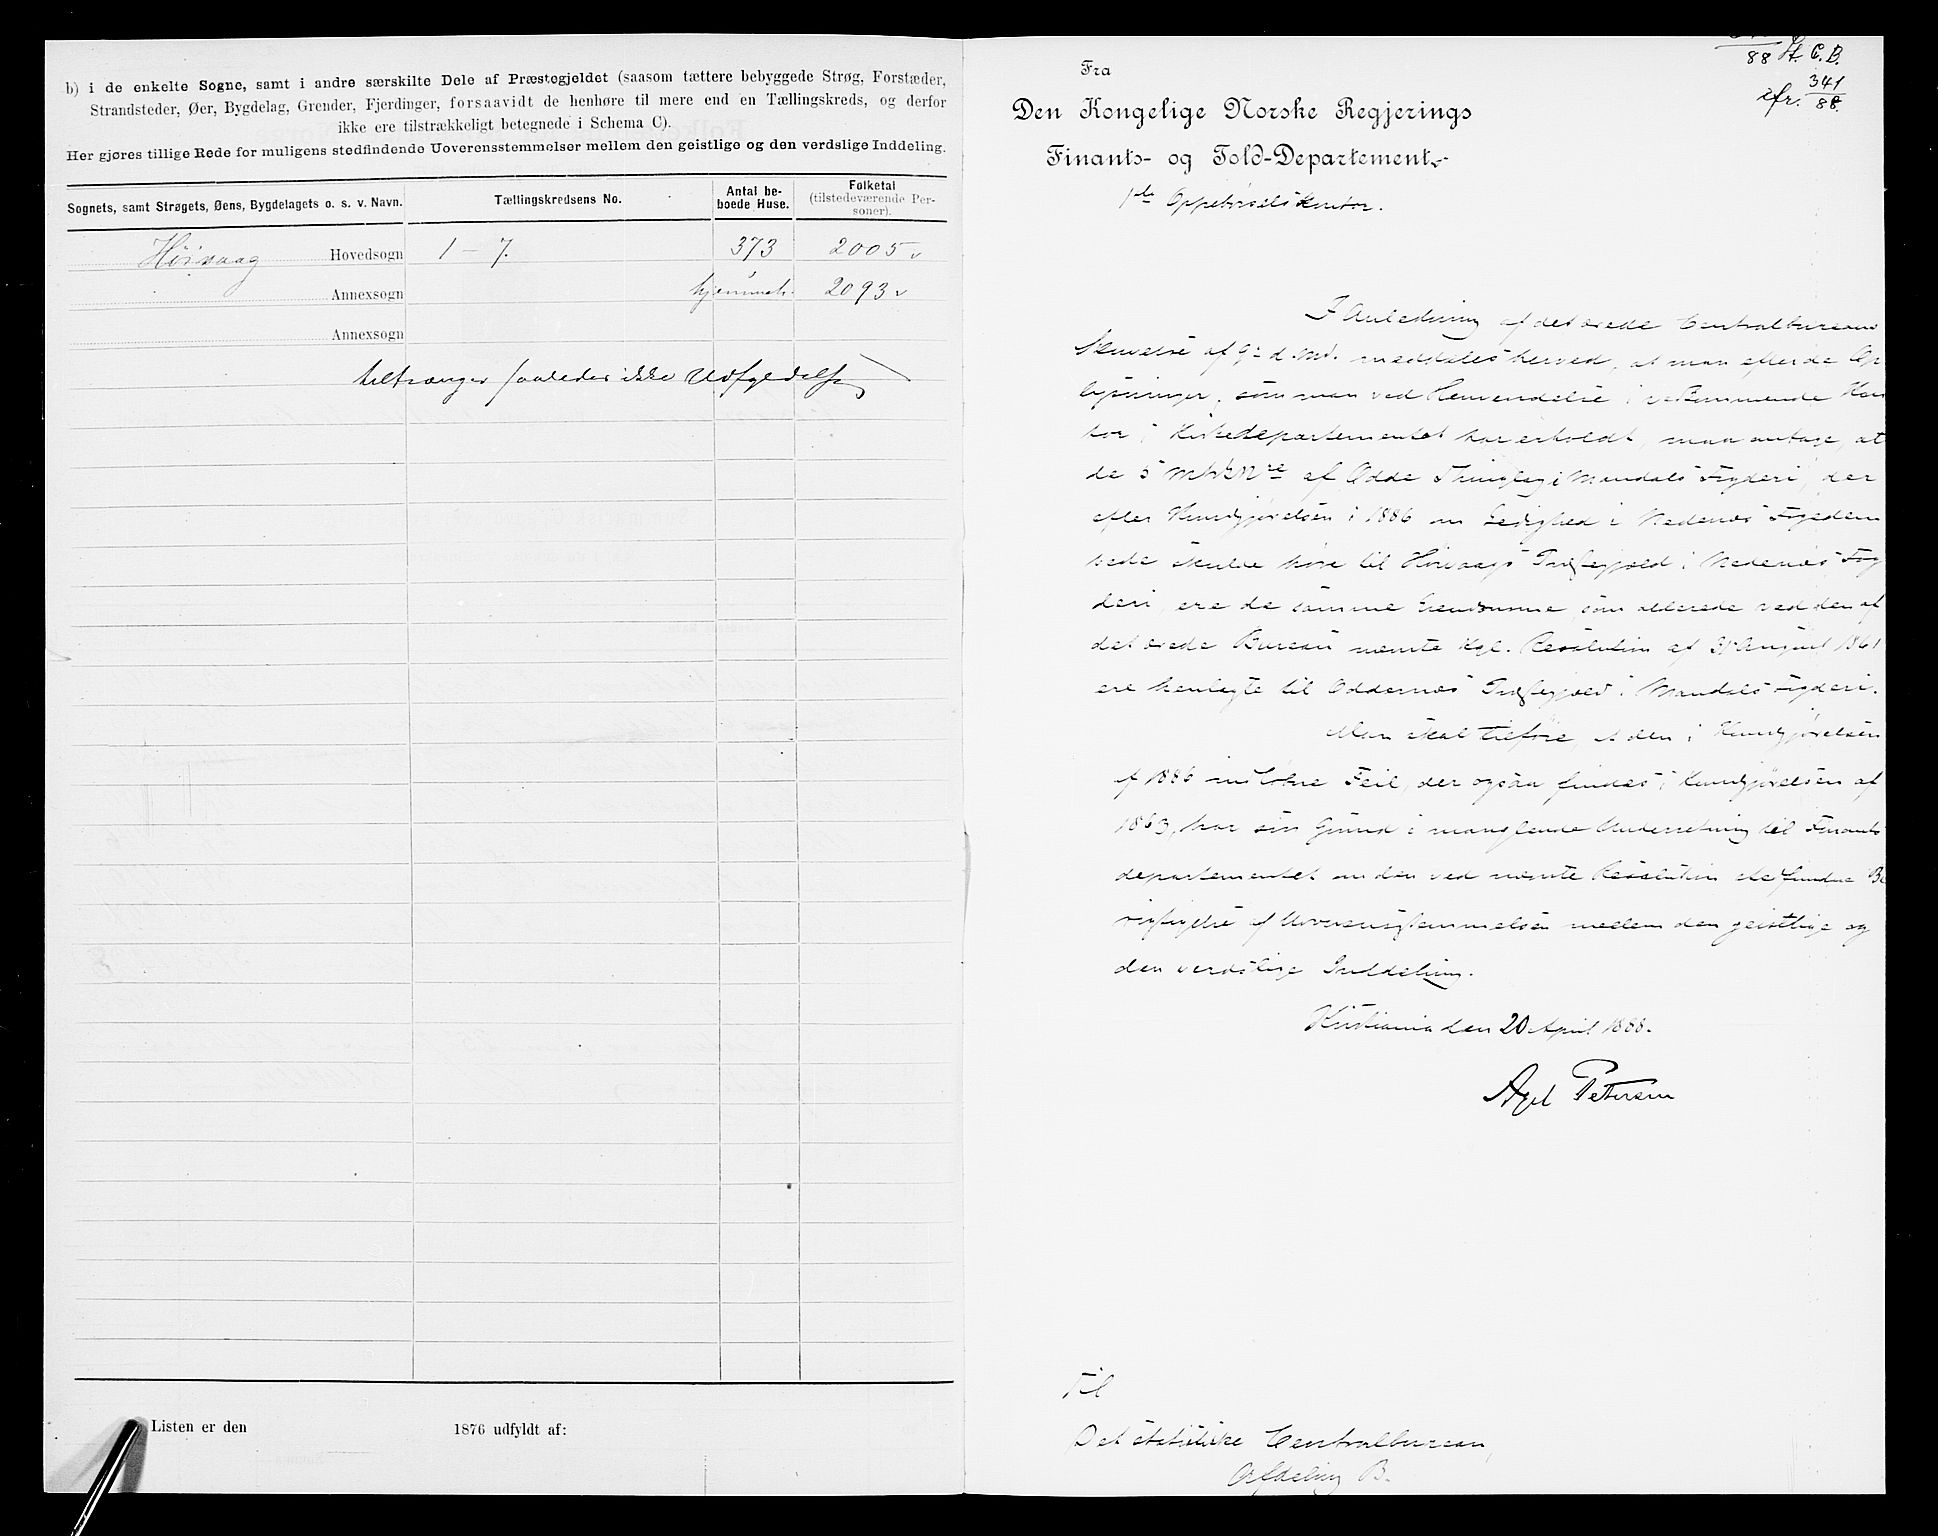 b) i de enkelte Sogne, samt i andre særskilte Dele af Præstegjeldet (saasom tættere bebyggede Strøg, Forstæder,
Strandsteder, Øer, Bygdelag, Grender, Fjerdinger, forsaavidt de henhøre til mere end en Tællingskreds, og derfor
ikke ere tilstrækkeligt betegnede i Schema C).
Her gjøres tillige Rede for muligens stedfindende Uoverensstemmelser mellem den geistlige og den verdslige Inddeling.
Sognets, samt Strøgets, Øens, Bygdelagets o. s. v. Navn.
Tællingskredsens No.
Antal be-
boede Huse.
Folketal
(tilstedeværende Per-
soner).
Høivaag Hovedsogn 1 - 7. 373 2005
Annexsogn hjemmeh. 2093
Annexsogn
tiltrænges saaledes ikke Udfyldelse
Listen er den 1876 udfyldt af:
88 St. C. B.
cfr. 341
88.
Fra
Den Kongelige Norske Regjerings
Finants- og Told-Departement
1ste Oppebørselskontor.
I Anledning af det ærede Centralbureaus
Skrivelse af 9de d. Md. meddeles herved, at man efter de Op-
lysninger, som man ved Henvendelse i vedkommende Kon
tor i Kirkedepartementet har erholdt, maa antage, at
de 5 Matr. Nre af Odde Thinglag i Mandals Fogderi, der
efter Kundgjørelsen i 1886 i Nedenes Fogderi
skulde høre til Høivaags Præstegjeld i Nedenes Fog
deri, ere de samme Eiendomme, som allerede ved den af
det ærede Bureau nævnte Kgl. Resolution af 31 August 1861
ere henlagte til Oddernes Præstegjeld i Mandals Fogderi.
Man skal tilføie, at den i Kundgjørelsen
af 1886 indløbne Feil, der ogsaa findes i Kundgjørelsen af
1863, har sin Grund i manglende Underretning til Finants
departementet om den ved nævnte Resolution stedfundne Be
rigtigelse af Uoverensstemmelsen mellem den geistlige og
den verdslige Inddeling.
Kristiania den 20 April 1888.
Axel Petersen
Til
Det statistiske Centralbureau,
Afdeling B.